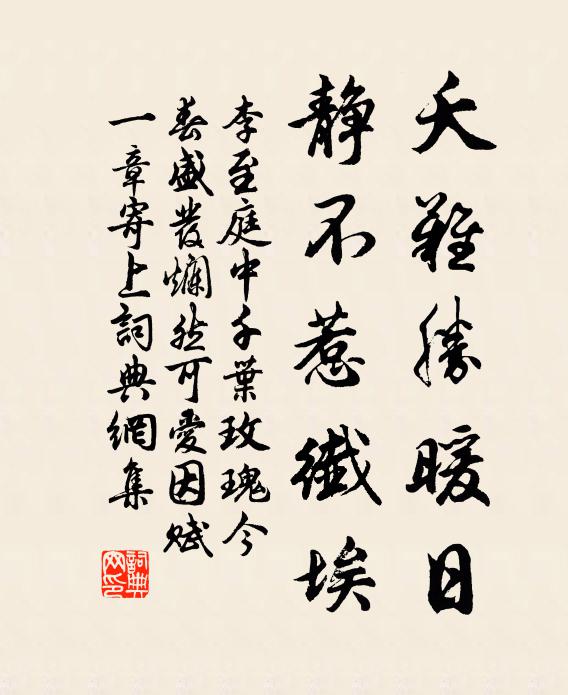 夭難勝暖日
静不惹纖埃
李至庭中千葉玫瑰今
春盛發爛然可愛因賦
一章寄上詞典網集
詞典網印